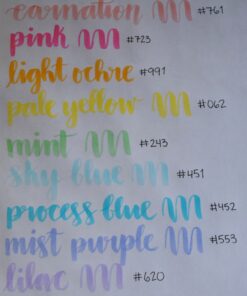 carnation #761
pink #723
light ochre #991
pale yellow #062
mint #243
sky blue #451
process blue #452
mist purple #553
lilac #620